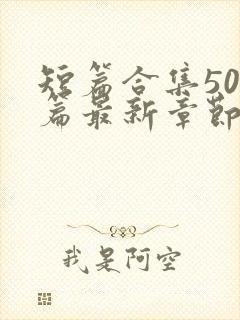 短篇合集50
篇最新章节
我是阿空